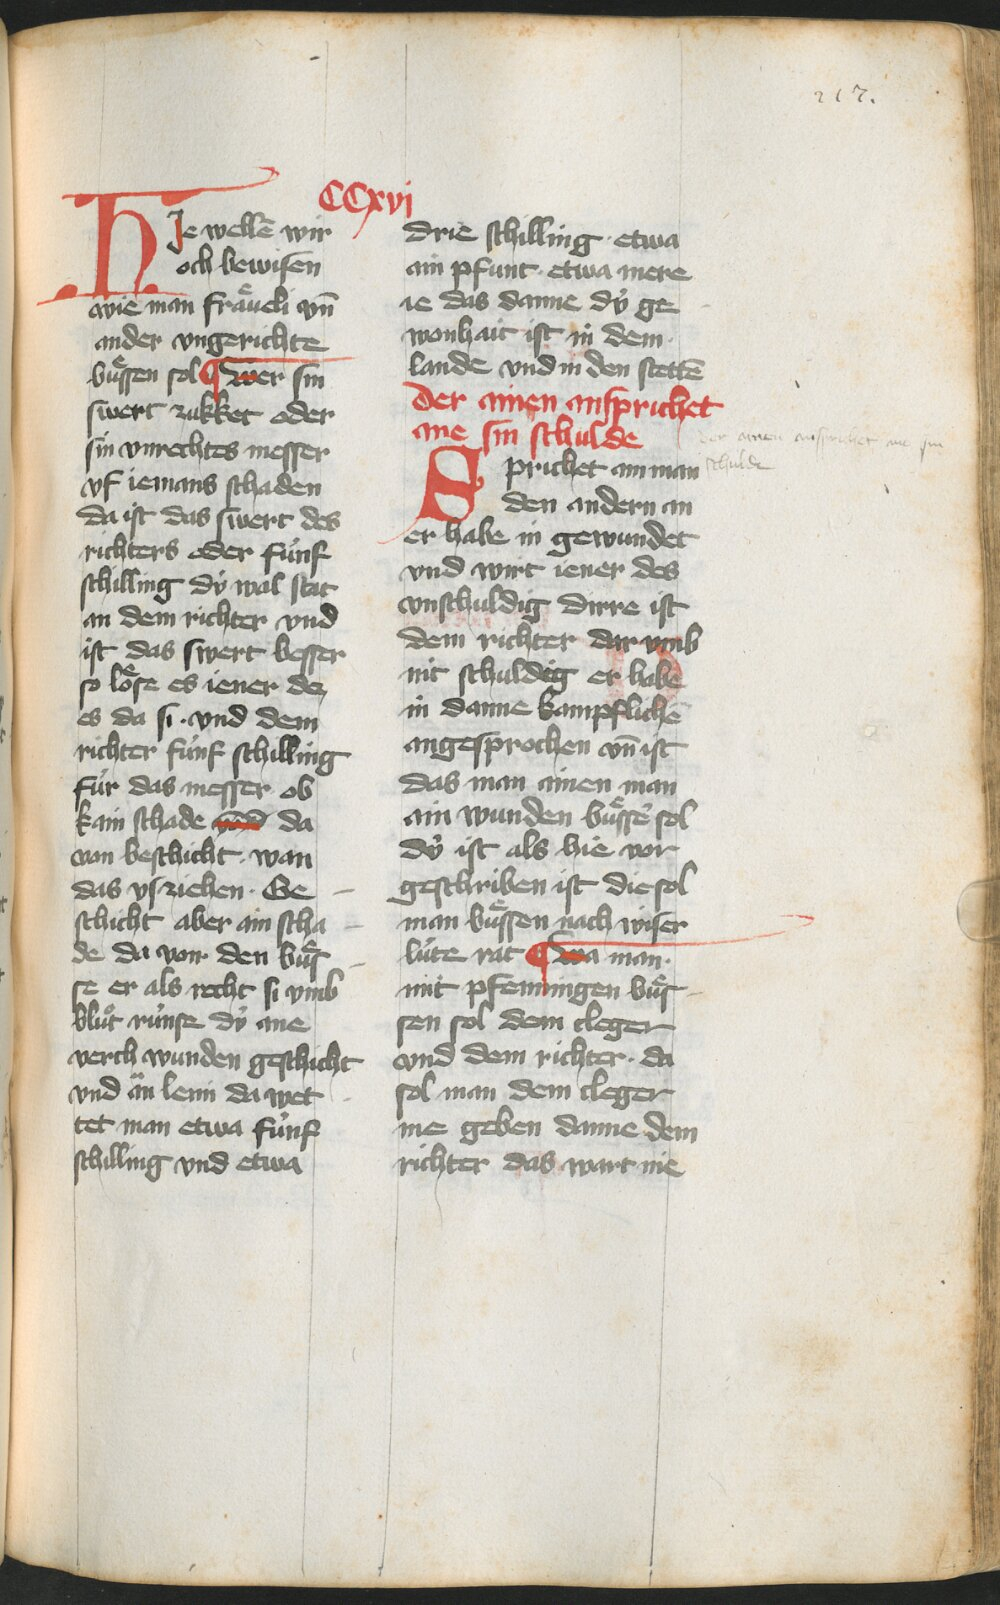 217.
CCxvi
HJe wellē wir
och bewisen
wie man fraͤueli vn̄
ander vngerichte
buͤssen sol ¶ Wer sin
swert zukket oder
sin vnrechtes messer
vf iemans schaden
da ist das swert des
richters oder fúnf
schilling dÿ wal stat
an dem richter vnd
ist das swert besser
so loͤse es iener dez
es da si · vnd dem
richter fúnf schilling
fúr das messer ob
kain schade da
von beschicht · wan
das vsziehen · Be
schicht aber ain scha
de da von · den buͤs
se er als recht si vmb
bluͦt rúnse dÿ ane
verch wunden geschicht
vnd an lemi da wet
tet man etwa fúnf
schilling vnd etwa
drie schilling · etwa
ain pfunt · etwa mere
ie das danne dÿ ge
wonhait ist in dem ·
lande vnd in den stettē
Der ainen ansprichet
ane sin schulde
der ainen ansprichet ane sin
schulde
Sprichet ain man
den andern an
er habe in gewundet
vnd wirt iener des
vnschuldig dirre ist
dem richter dar vmb
nit schuldig er habe
in danne kampflichē
angesprochen vn̄ ist
das man ainen man
ain wunden buͤssē sol
dÿ ist als hie vor
geschriben ist die sol
man buͤssen nach wiser
lúte rat ¶ Wa man ·
mit pfenningen buͤs
sen sol dem cleger
vnd dem richter · da
sol man dem cleger
me geben danne dem
richter das wart nie